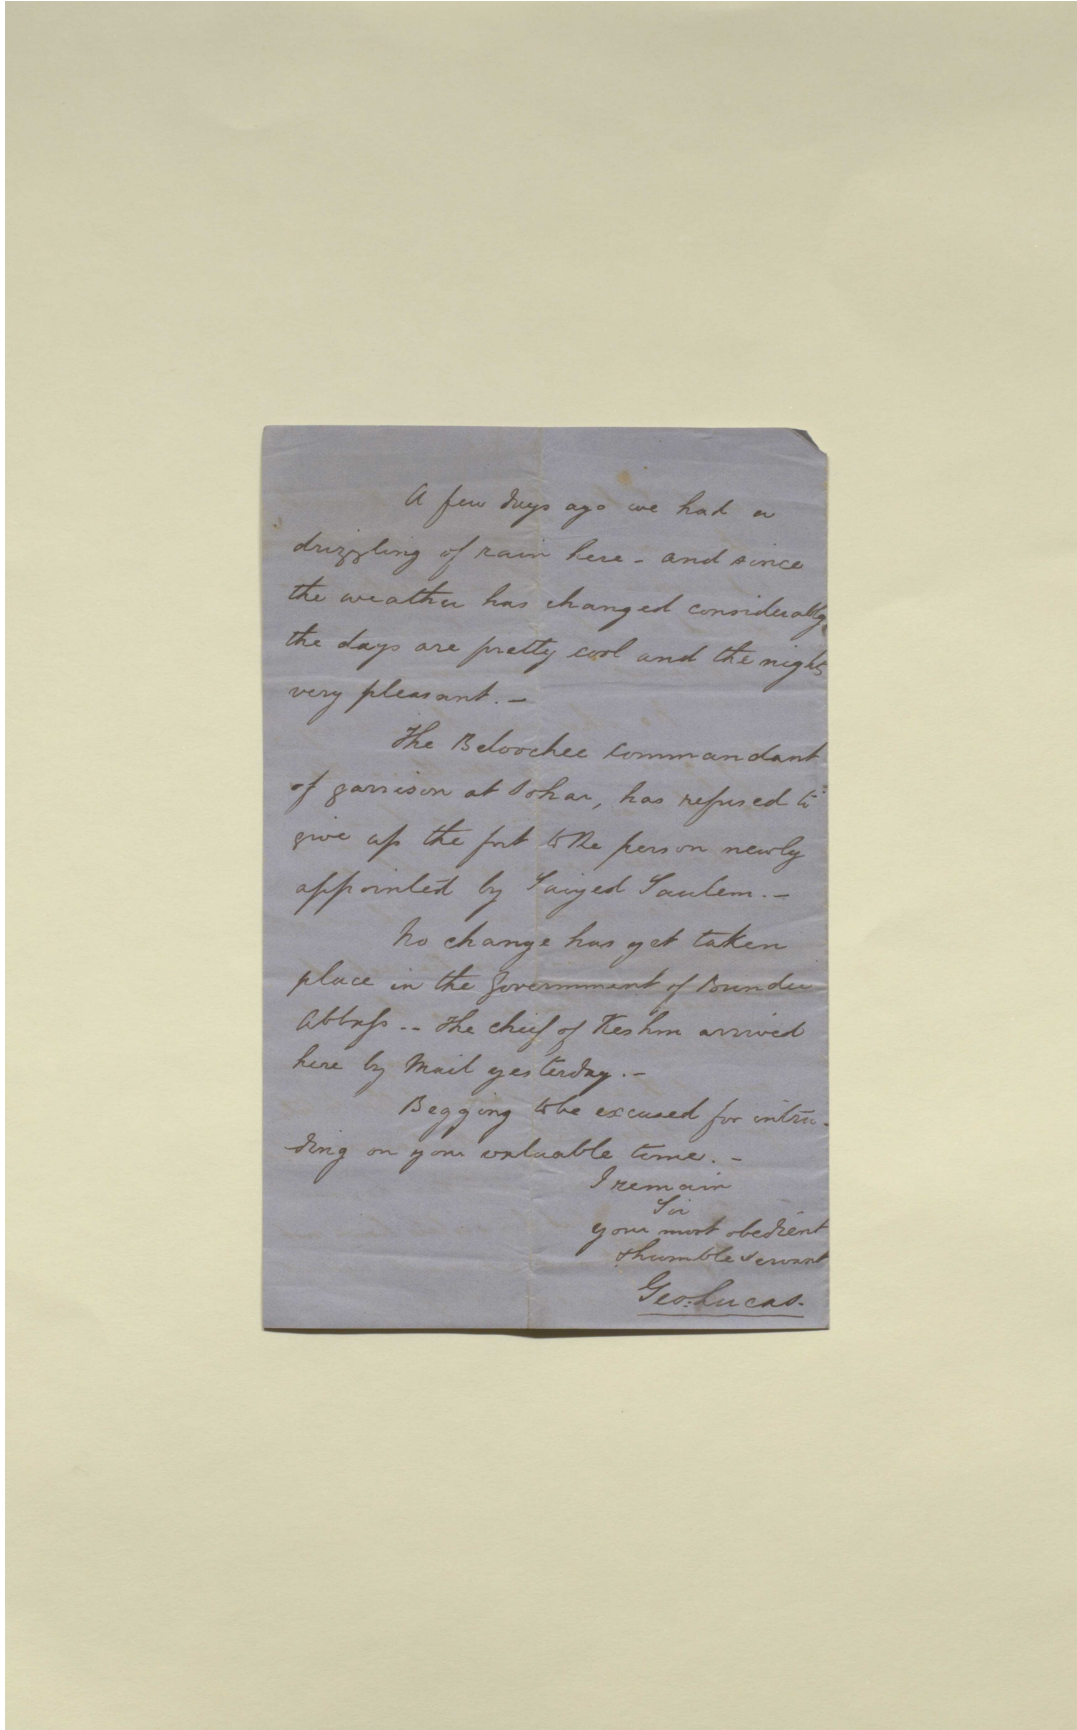 A few days ago we had a
drizzling of rain here - and since
the weather has changed considerably,
the days are pretty cool and the nights
very pleasant. -
The Beloochee Commandant
of garrison at Sohar, has refused to
give up the fort to the person newly
appointed by Saiyed Saulem. -
No change has yet taken
place in the Government of Bunder
Abbass -- The chief of Keshm arrived
here by Mail yesterday. -
Begging to be excused for intru-
ding on your valuable time. -
I remain
Sir
your most obedient
& humble servant
Geo: Lucas.